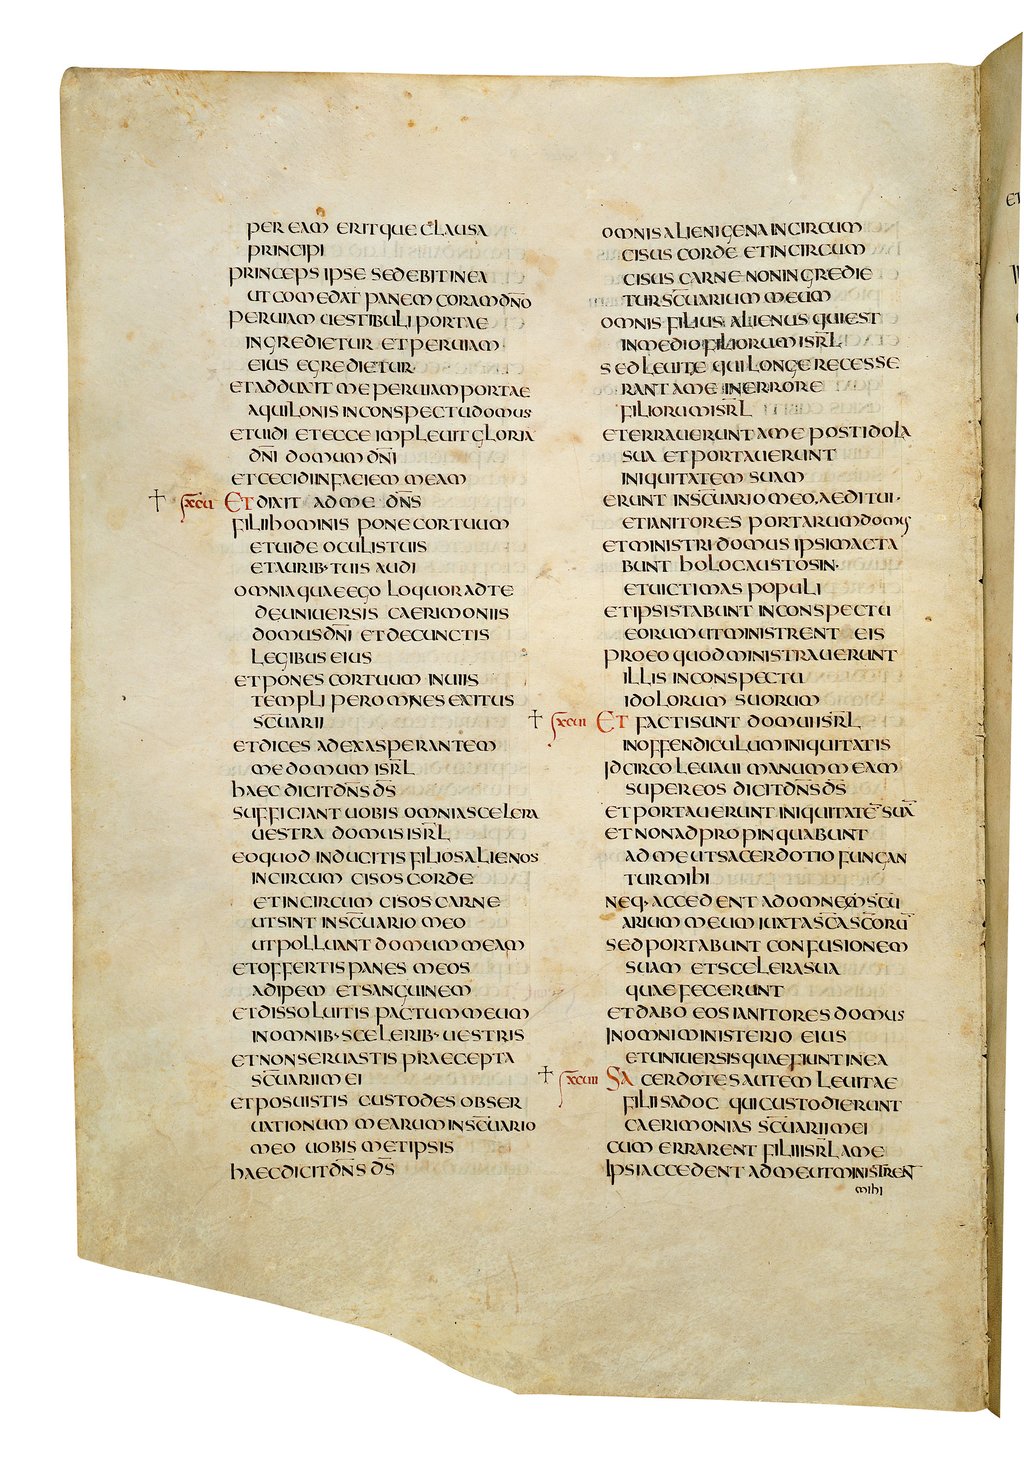 per eam eritque clausa
principi
princeps ipse sedebit in ea
ut comedat panem coram dn̄o
per uiam uestibuli portae
ingredietur et per uiam
eius egredietur
et adduxit me per uiam portae
aquilonis in conspectu domus
et uidi et ecce impleuit gloria
dn̄i domum dn̄i
et cecidi in faciem meam
† xcii Et dixit ad me dn̄s
fili hominis pone cor tuum
et uide oculis tuis
et aurib· tuis audi
omnia quae ego loquor ad te
de uniuersis caerimoniis
domus dn̄i et de cunctis
legibus eius
et pones cor tuum in uiis
templi per omnes exitus
sc̄uarii
et dices ad exasperantem
me domum isr̄l
haec dicit dn̄s ds̄
sufficiant uobis omnia scelera
uestra domus isr̄l
eo quod inducitis filios alienos
incircumcisos corde
et incircumcisos carne
ut sint in sc̄uario meo
ut polluant domum meam
et offertis panes meos
adipem et sanguinem
et dissoluitis pactum meum
in omnib· scelerib· uestris
et non seruastis praecepta
sc̄uarii mei
et posuistis custodes obser
uationum mearum in sc̄uario
meo uobismetipsis
haec dicit dn̄s ds̄
omnis alienigena incircum
cisus corde et incircum
cisus carne non ingredie
tur sc̄uarium meum
omnis filius alienus qui est
in medio filiorum isr̄l
sed leuite qui longe recesse
rant a me in errore
filiorum isr̄l
et errauerunt a me post idola
sua et portauerunt
iniquitatem suam
erunt in sc̄uario meo, aeditui·
et ianitores portarum domus
et ministri domus ipsi macta
bunt holocaustosin·
et uictimas populi
et ipsi stabunt in conspectu
eorum ut ministrent eis
pro eo quod ministrauerunt
illis in conspectu
idolorum suorum
† xcii Et facti sunt domui isr̄l
in offendiculum iniquitatis
idcirco leuaui manum meam
super eos dicit dn̄s ds̄
et portauerunt iniquitatē suā
et non adpropinquabunt
ad me ut sacerdotio fungan
tur mihi
neq· accedent ad omnem sc̄u
arium meum iuxta sc̄a sc̄orū
sed portabunt confusionem
suam et scelera sua
quae fecerunt
et dabo eos ianitores domus
in omni ministerio eius
et uniuersis quae fiunt in ea
† xciii Sacerdotes autem leuitae
filii sadoc qui custodierunt
caerimonias sc̄uarii mei
cum errarent filii isr̄l a me
ipsi accedent ad me ut ministrent
mihi